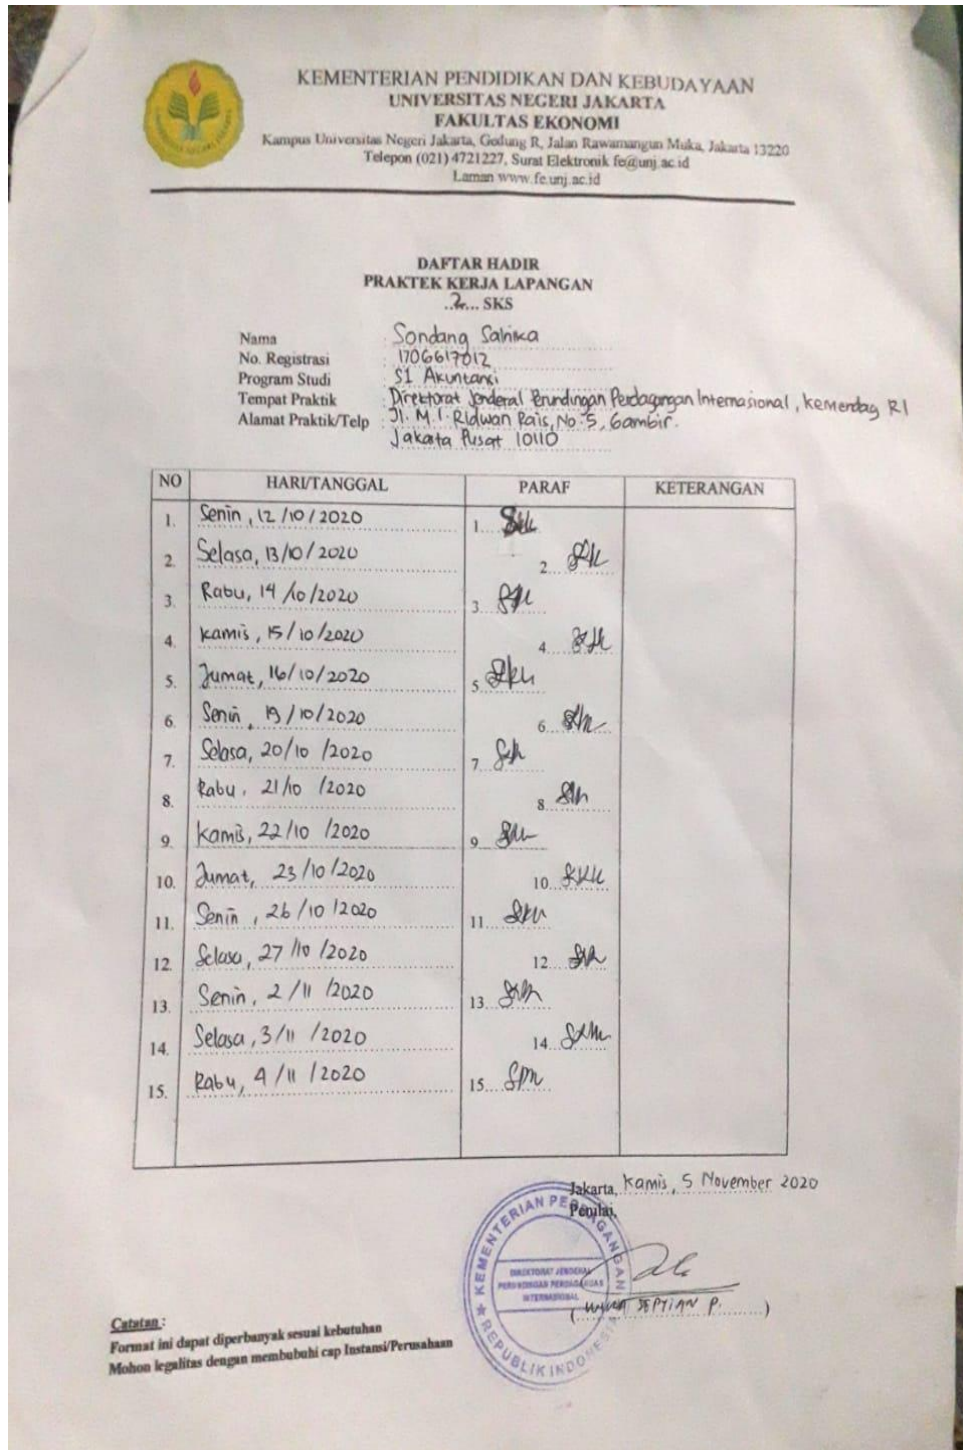 KEMENTERIAN PENDIDIKAN DAN KEBUDAYAAN
UNIVERSITAS NEGERI JAKARTA
FAKULTAS EKONOMI
Kampus Universitas Negeri Jakarta, Gedung R, Jalan Rawamangun Muka, Jakarta 13220
Telepon (021) 4721227, Surat Elektronik fe@unj.ac.id
Laman www.fe.unj.ac.id
DAFTAR HADIR
PRAKTEK KERJA LAPANGAN
..2... SKS
Nama : Sondang Salnika
No. Registrasi : 1706617012
Program Studi : S1 Akuntansi
Tempat Praktik : Direktorat Jenderal Perundingan Perdagangan Internasional, Kemendag RI
Alamat Praktik/Telp : Jl. M.I. Ridwan Rais, No.5, Gambir.
Jakarta Pusat 10110
NO HARI/TANGGAL PARAF KETERANGAN
1. Senin, 12/10/2020 1
2. Selasa, 13/10/2020 2
3. Rabu, 14/10/2020 3
4. Kamis, 15/10/2020 4
5. Jumat, 16/10/2020 5
6. Senin, 19/10/2020 6
7. Selasa, 20/10/2020 7
8. Rabu, 21/10/2020 8
9. Kamis, 22/10/2020 9
10. Jumat, 23/10/2020 10
11. Senin, 26/10/2020 11
12. Selasa, 27/10/2020 12
13. Senin, 2/11/2020 13
14. Selasa, 3/11/2020 14
15. Rabu, 4/11/2020 15
Jakarta, Kamis, 5 November 2020
Penilai,
KEMENTERIAN PERDAGANGAN
DIREKTORAT JENDERAL
PERUNDINGAN PERDAGANGAN
INTERNASIONAL
REPUBLIK INDONESIA
( SEPTIAN P. )
Catatan :
Format ini dapat diperbanyak sesuai kebutuhan
Mohon legalitas dengan membubuhi cap Instansi/Perusahaan